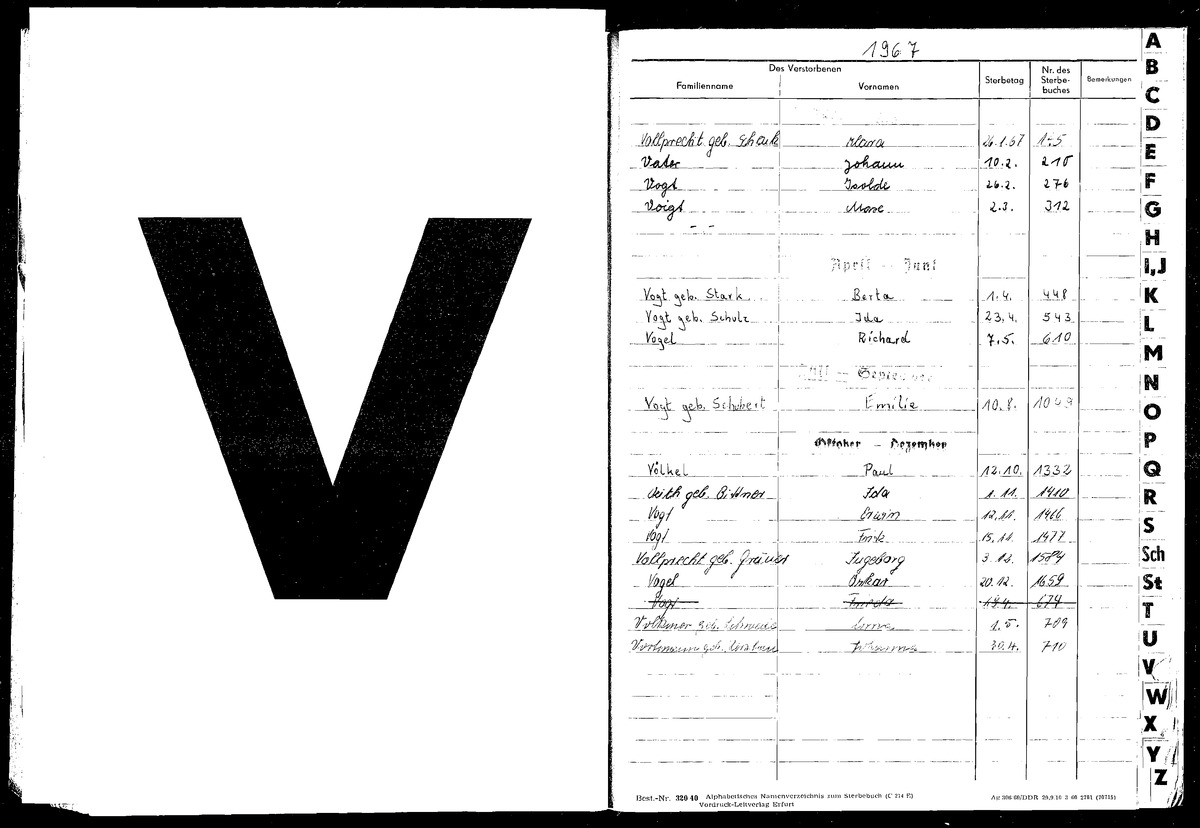 V
1967
Des Verstorbenen
Familienname Vornamen Sterbetag Nr. des Sterbe- buches Bemerkungen
Vollprecht geb. Schenk Klara 26.1.67
Vater Johann 10.2. 210
Vogt Isolde 26.2. 276
Voigt 2.3. 312
April — Juni
Vogt geb. Stark Berta 1.4. 448
Vogt geb. Schulz Ida 23.4. 543
Vogel Richard 7.5. 610
Juli — September
Vogt geb. Schubert Emilie 10.8. 1049
Oktober — Dezember
Völkel Paul 12.10. 1332
Veith geb. Bittner Ida 1.11. 1410
Vogt Erwin 12.11. 1466
Vogt 15.11. 1477
Vollprecht geb. Ingeborg 3.12. 1584
Vogel Oskar 20.12. 1659
Vogt Frieda 19.4. 674
geb. 1.5. 709
geb. Johanna 30.4. 710
A
B
C
D
E
F
G
H
I,J
K
L
M
N
O
P
Q
R
S
Sch
St
T
U
V
W
X
Y
Z
Best.-Nr. 320 40 Alphabetisches Namenverzeichnis zum Sterbebuch (C 214 E)
Vordruck-Leitverlag Erfurt